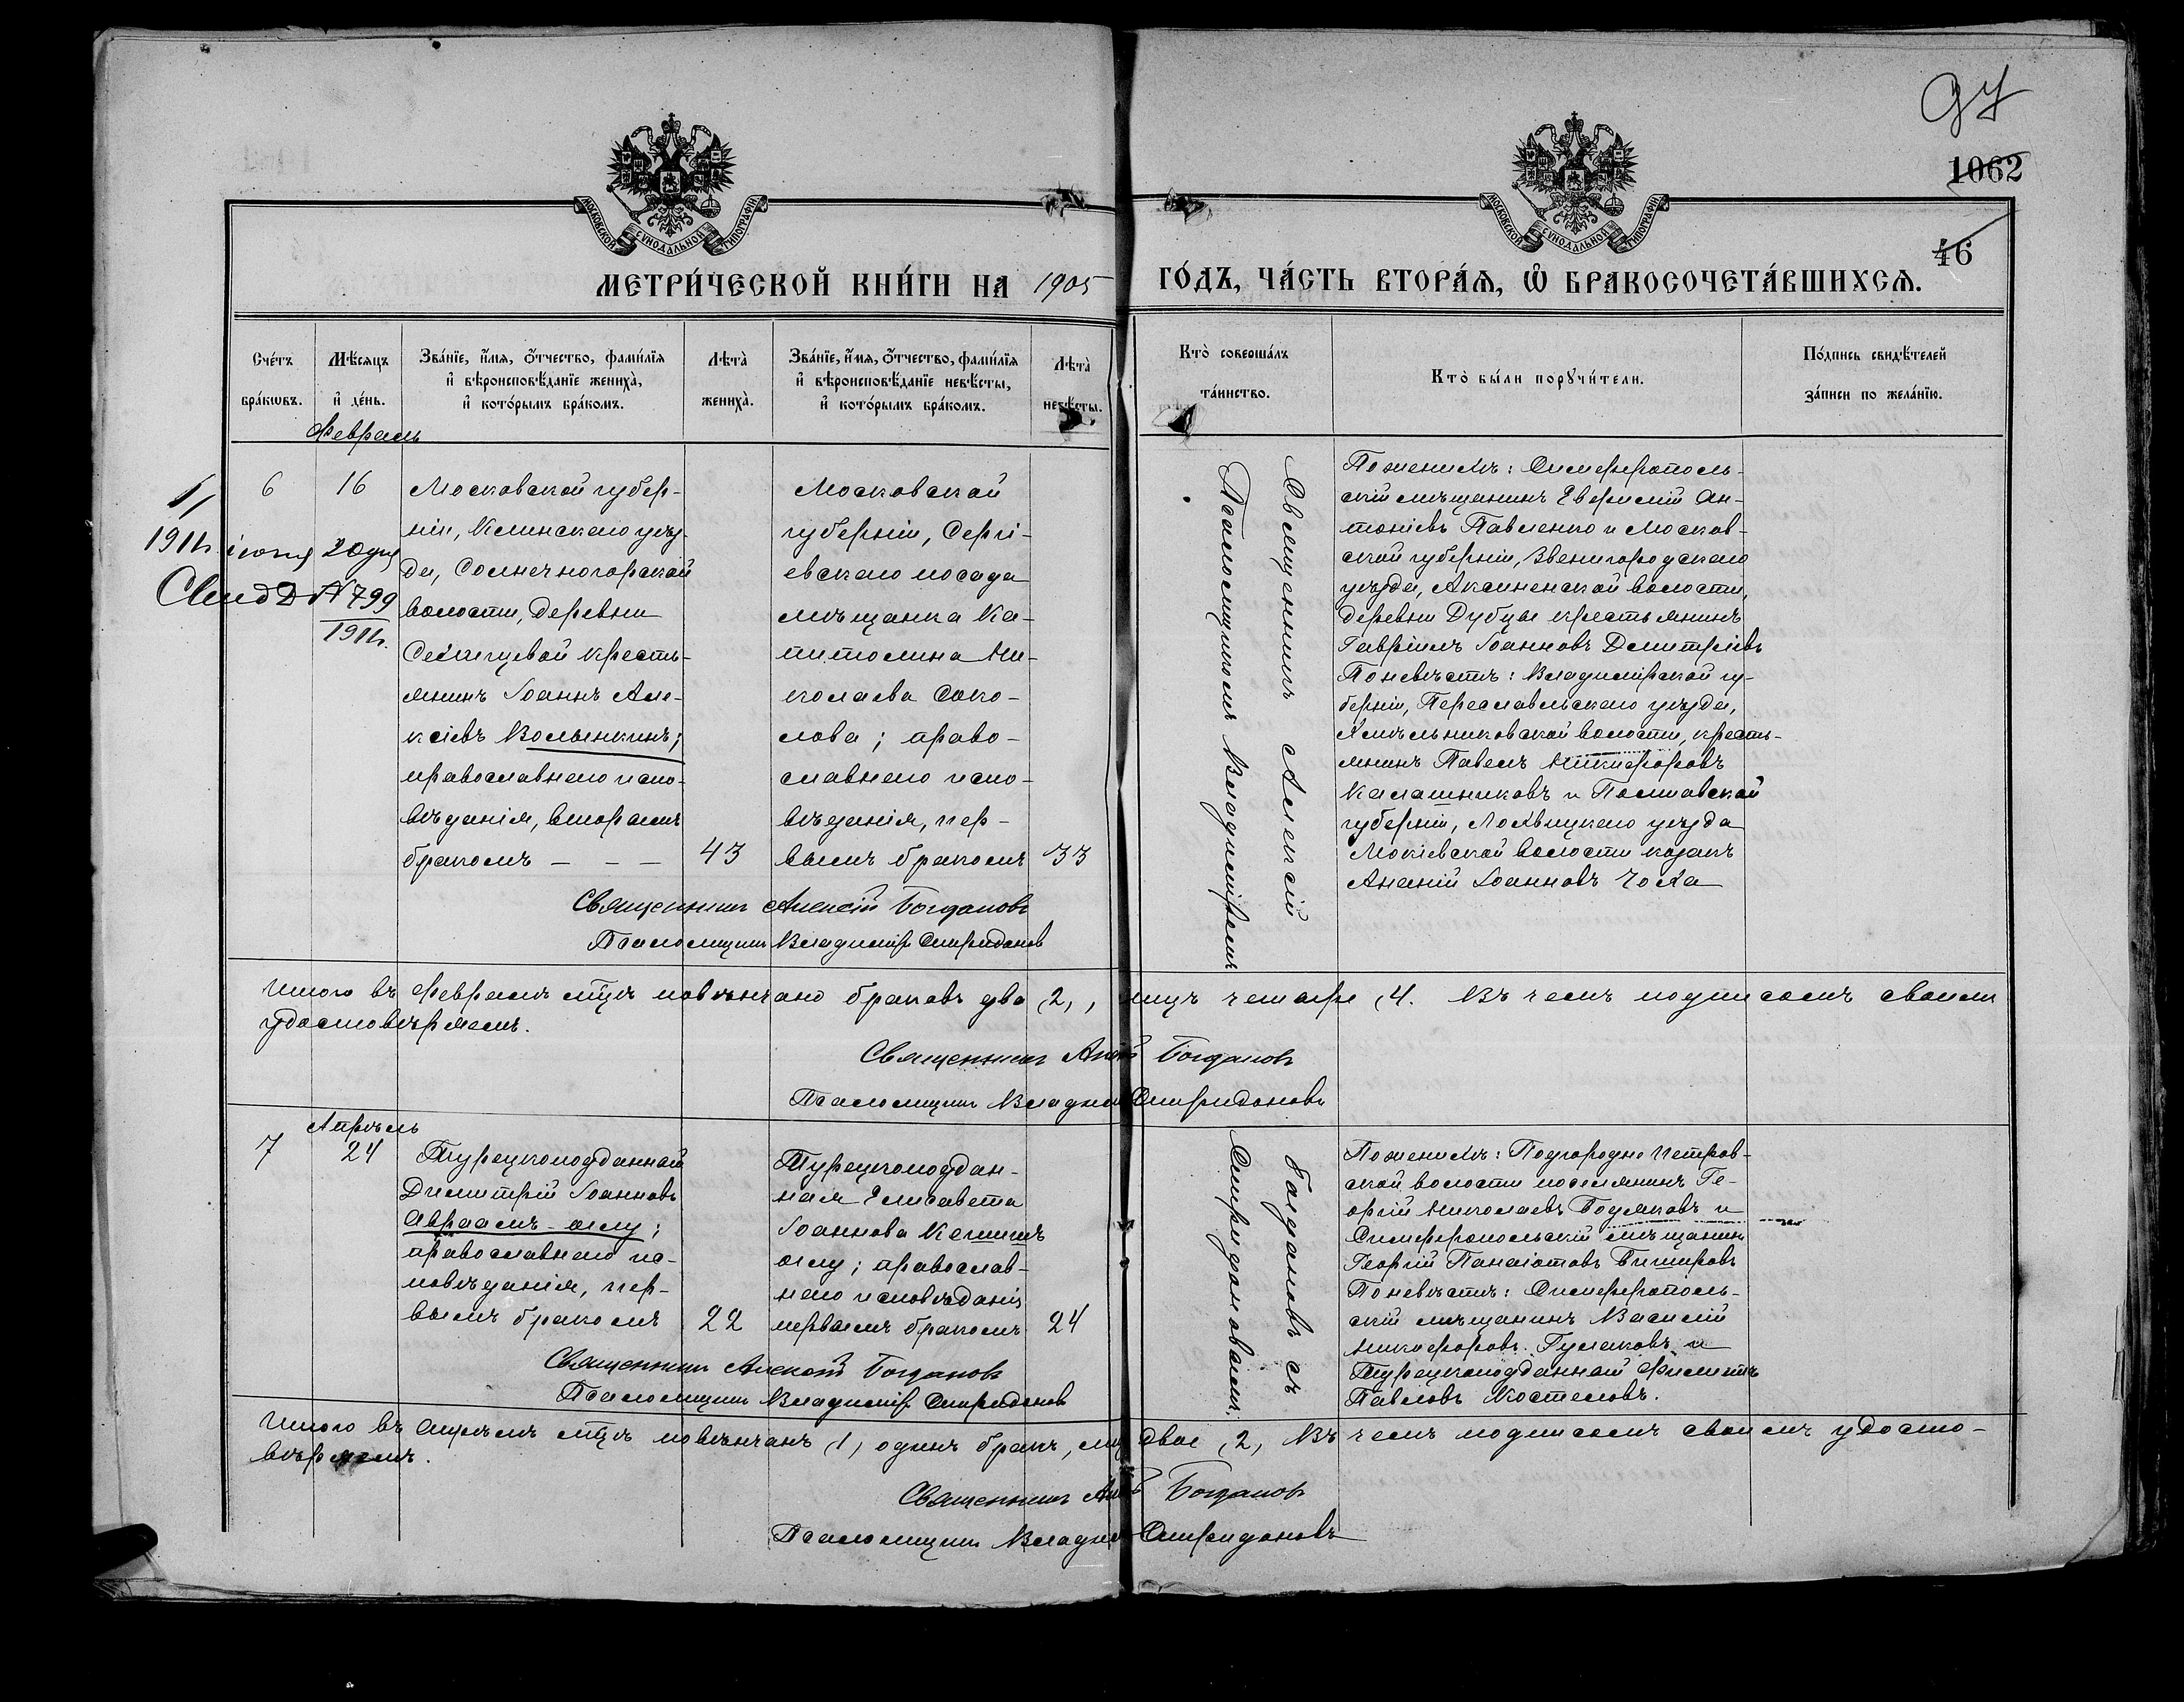 97
1062
46
МОСКОВСКОЙ СѴНОДАЛЬНОЙ ТИПОГРАФІИ
МОСКОВСКОЙ СѴНОДАЛЬНОЙ ТИПОГРАФІИ
МЕТРИ́ЧЕСКОЙ КНИ́ГИ НА 1905 ГО́ДЪ, ЧА́СТЬ ВТОРА́Ѧ, Ѽ БРАКОСОЧЕТА́ВШИХСѦ.
Сче́тъ бра́кѡвъ.
Мѣ́сяцъ и҆ де́нь.
Зва́нїе, и҆́мя, ѻ҆́тчество, фами́лїя
и҆ вѣроисповѣ́данїе жениха̀,
и҆ кото́рымъ бра́комъ.
Лѣта̀ жениха̀.
Зва́нїе, и҆́мя, ѻ҆́тчество, фами́лїя
и҆ вѣроисповѣ́данїе невѣ́сты,
и҆ кото́рымъ бра́комъ.
Лѣта̀ невѣ́сты.
Кто̀ соверша́лъ та́инство.
Кто̀ бы́ли порꙋчи́тели.
По́дпись свидѣ́телей за́писи по жела́нїю.
Февраль
6
16
1911г. іюня 20 дня
№ 799
1911г.
Московской губер-
ніи, Клинскаго уѣз-
да, Солнечногорской
волости, деревни
крестья-
янинъ Іоаннъ Але-
ксіевъ Волынкинъ;
православнаго испо-
вѣданія, вторымъ
бракомъ – – –
43
Московской
губерніи, Сергі-
евскаго посада
мѣщанка Ка-
питолина Ни-
колаева Соко-
лова; право-
славнаго испо-
вѣданія, пер-
вымъ бракомъ
33
Священникъ Алексій
Псаломщикомъ Владиміромъ
По женихѣ: Симферополь-
скій мѣщанинъ Евфимій Ан-
тоніевъ Павленко и Москов-
ской губерніи, Звенигородскаго
уѣзда, Аксиненской волости,
деревни Дубцы крестьянинъ
Гавріилъ Іоанновъ Димитріевъ
По невѣстѣ: Владимірской гу-
берніи, Переславльскаго уѣзда,
Хмѣльниковской волости, кресть-
янинъ Павелъ Никифоровъ
Калашниковъ и Полтавской
губерніи, Лохвицкаго уѣзда
Мокіевской волости козакъ
Ананій Іоанновъ Чоха
Священникъ Алексій Богдановъ
Псаломщикъ Владиміръ Спиридоновъ
Итого въ Февралѣ мцѣ повѣнчано браковъ два (2), лицъ четыре (4). Въ чемъ подписомъ своимъ
удостовѣряемъ.
Священникъ Богдановъ
Псаломщикъ Спиридоновъ
Апрѣль
7
24
Турецкоподданный
Димитрій Іоанновъ
Авраамъ-оглу;
православнаго ис-
повѣданія, пер-
вымъ бракомъ
22
Турецкоподдан-
ная Елисавета
Іоаннова
оглу; православ-
наго исповѣданія
первымъ бракомъ
24
Богдановъ съ
Спиридоновымъ.
По женихѣ: Подгородне Петров-
ской волости поселянинъ Ге-
оргій Николаевъ Бодяковъ и
Симферопольскій мѣщанинъ
Георгій Панаіотовъ
По невѣстѣ: Симферополь-
скій мѣщанинъ Василій
Никифоровъ и
Турецкоподданный Филиппъ
Павловъ Костеловъ.
Священникъ Алексій Богдановъ
Псаломщикъ Владиміръ Спиридоновъ
Итого въ Апрѣлѣ мцѣ повѣнчанъ (1) одинъ бракъ, двое (2). Въ чемъ подписомъ своимъ удосто-
вѣряемъ.
Священникъ Богдановъ
Псаломщикъ Спиридоновъ